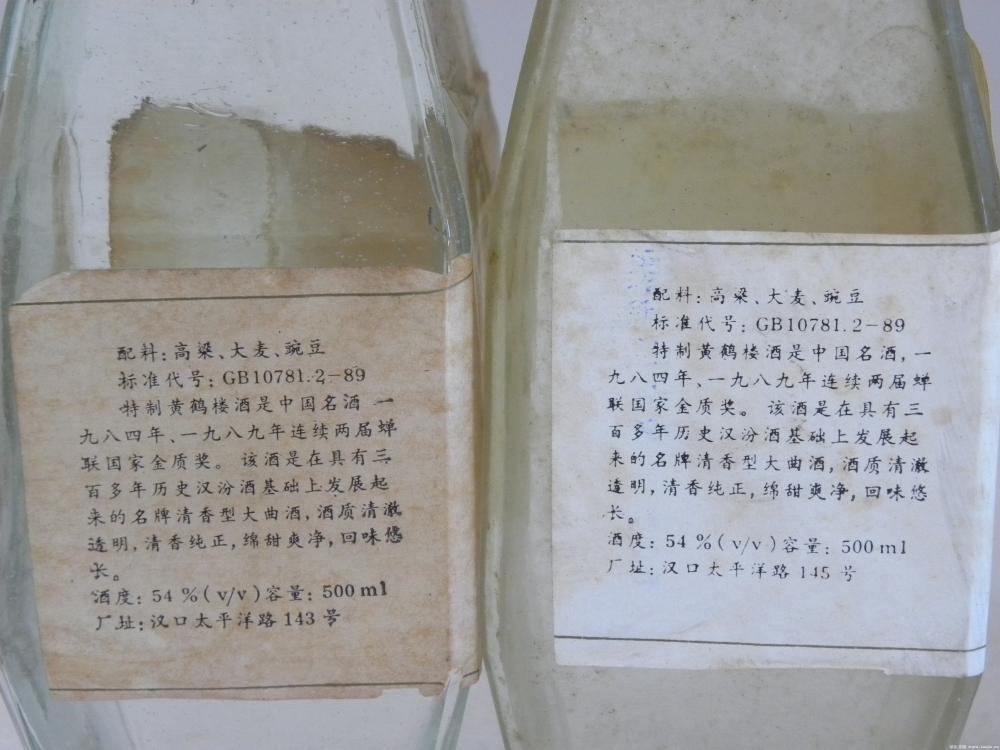 配料:高粱、大麦、豌豆
标准代号:GB10781.2-89
特制黄鹤楼酒是中国名酒 一
九八四年、一九八九年连续两届蝉
联国家金质奖。该酒是在具有三
百多年历史汉汾酒基础上发展起
来的名牌清香型大曲酒,酒质清澈
透明,清香纯正,绵甜爽净,回味悠
长。
酒度:54%(v/v)容量:500ml
厂址:汉口太平洋路143号
配料:高粱、大麦、豌豆
标准代号:GB10781.2-89
特制黄鹤楼酒是中国名酒,一
九八四年、一九八九年连续两届蝉
联国家金质奖。该酒是在具有三
百多年历史汉汾酒基础上发展起
来的名牌清香型大曲酒,酒质清澈
透明,清香纯正,绵甜爽净,回味悠
长。
酒度:54%(v/v)容量:500ml
厂址:汉口太平洋路145号